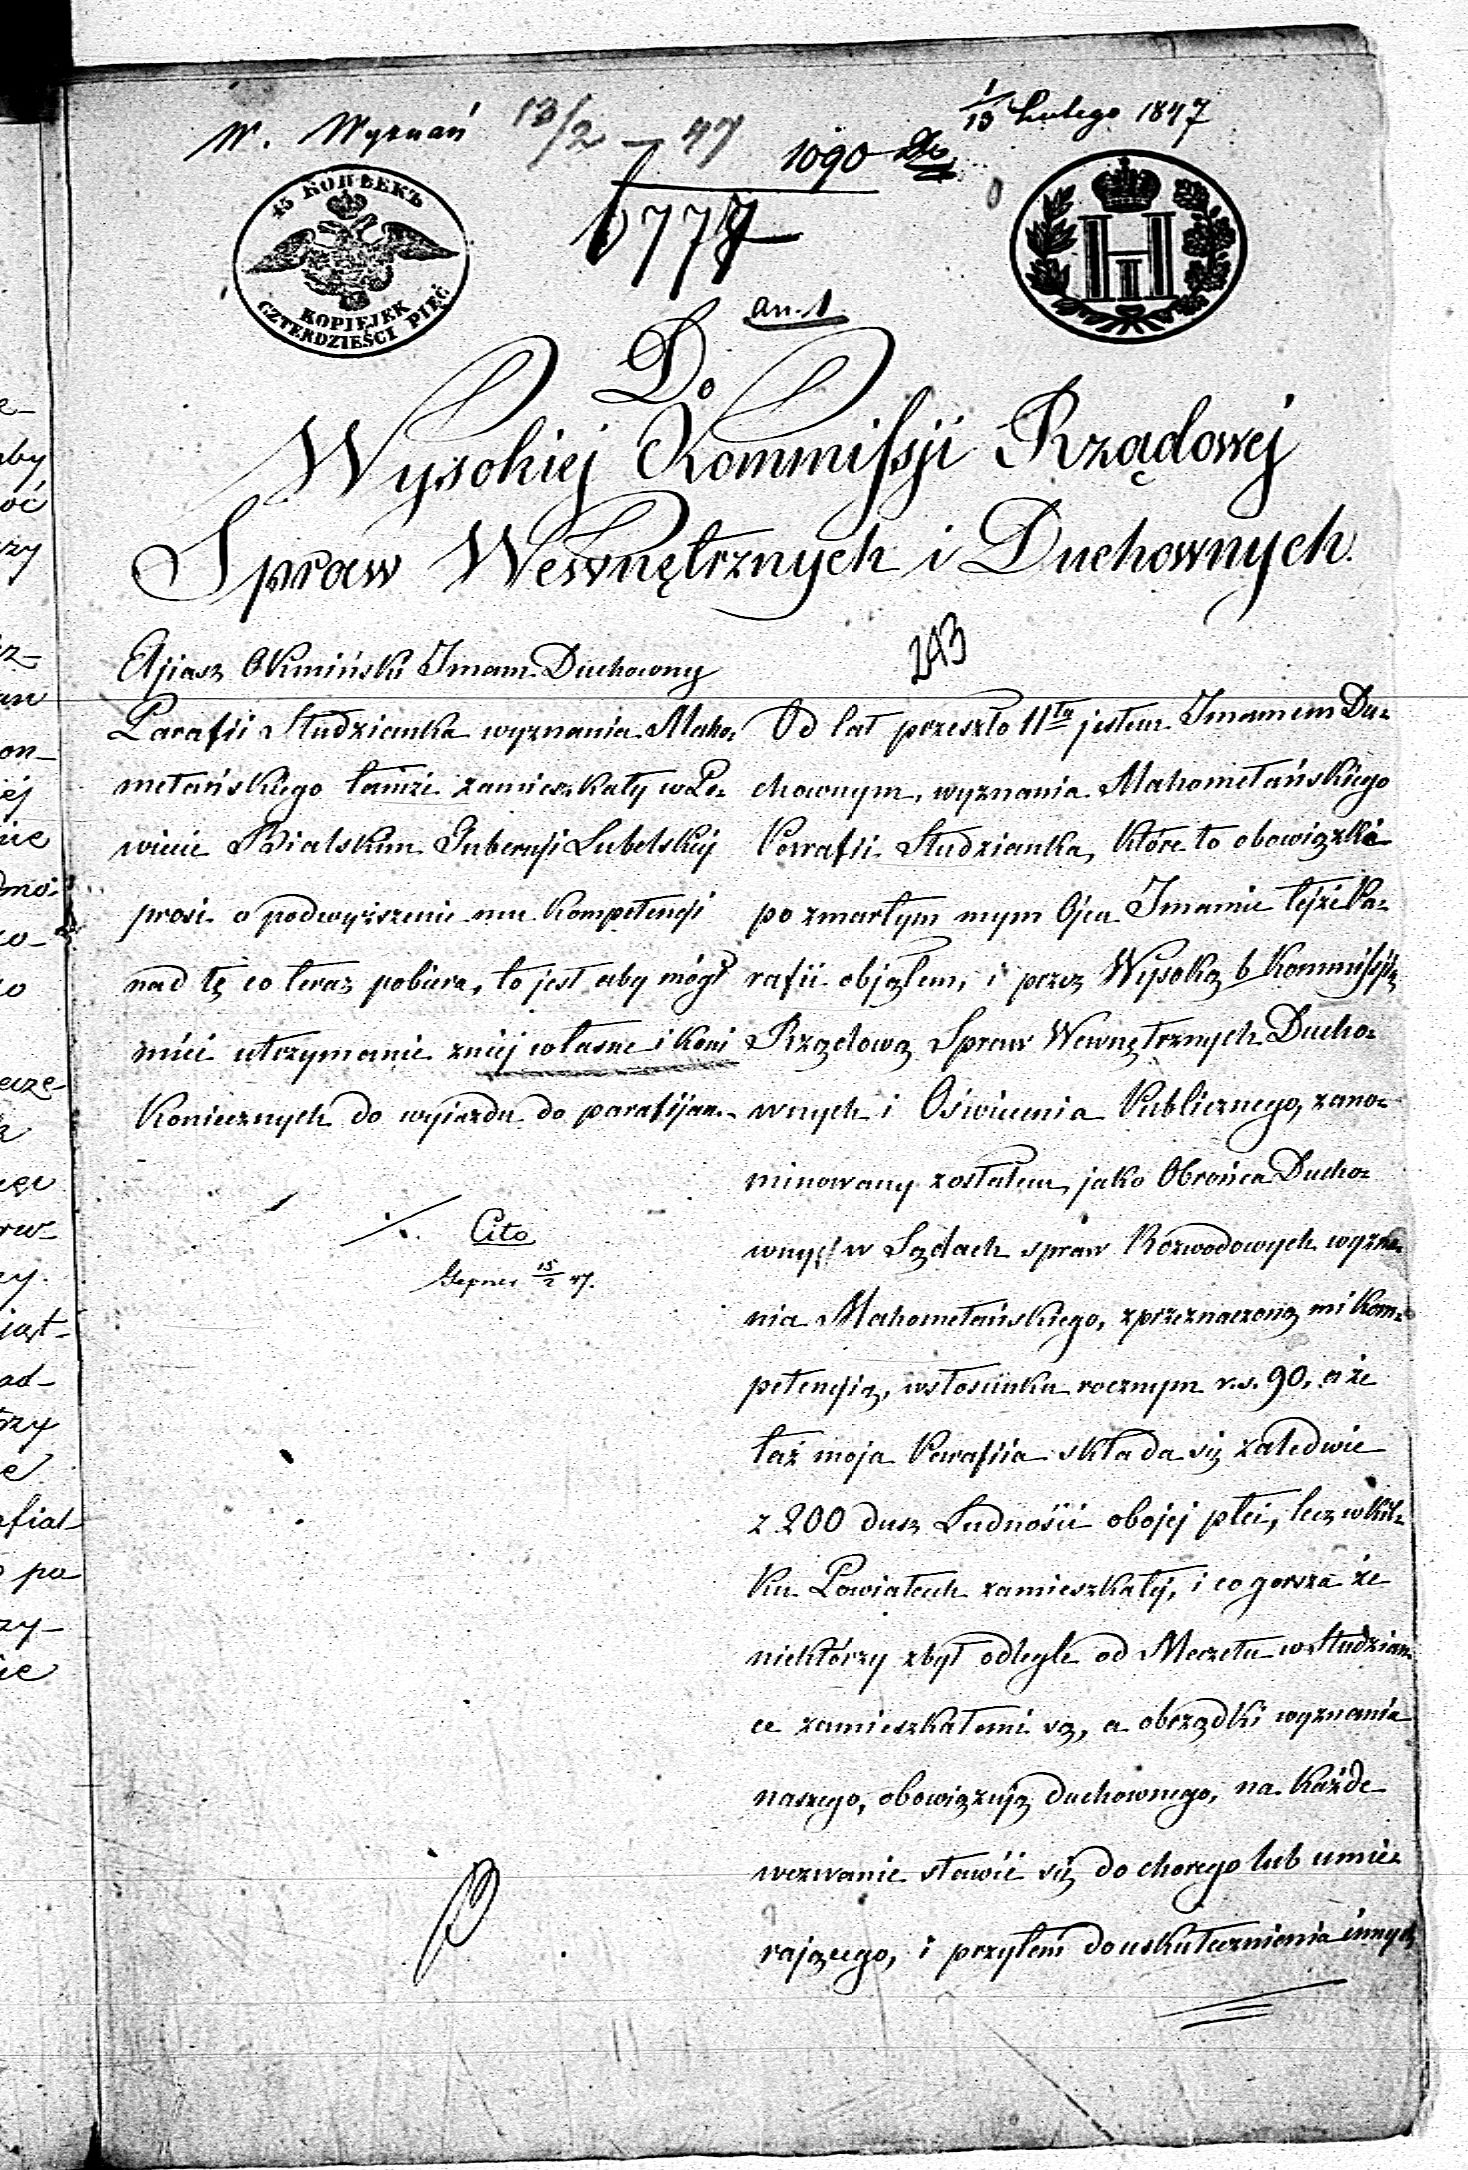 W. Wyznań 13/2 – 47
1090
1/13 Lutego 1847
6777
45 КОПѢЕКЪ
KOPIEJEK
CZTERDZIEŚCI PIĘĆ
H I
an. 1
Do
Wysokiej Kommissji Rządowej
Spraw Wewnętrznych i Duchownych.
243
Eljasz Okmiński Imam Duchowny
Parafii Studzianka wyznania Maho-
metańskiego tamże zamieszkały w Po-
wiecie Bialskim Gubernji Lubelskiej
prosi o podwyższenie mu kompetencji
nad tę co teraz pobiera, to jest aby mógł
mieć utrzymanie z niej własne i koni
koniecznych do wyjazdu do parafijan.
Cito
15/2 47.
Od lat przeszło 11tu jestem Imamem Du-
chownym, wyznania Mahometańskiego
Parafii Studzianka, które to obowiązki
po zmarłym mym Ojcu Imamie tejże Pa-
rafii objąłem, i przez Wysoką b Kommissją
Rządową Spraw Wewnętrznych Ducho-
wnych i Oświecenia Publicznego, zano-
minowany zostałem, jako Obrońca Ducho-
wny w Sądach spraw Rozwodowych wyzna-
nia Mahometańskiego, z przeznaczoną mi kom-
petencją, w stosunku rocznym r.s. 90, a że
taż moja Parafiia składa się zaledwie
z 200 dusz Ludności obojej płci, lecz w kil-
ku Powiatach zamieszkałej, i co gorsza że
niektórzy zbyt odlegle od Meczetu w Studzian-
ce zamieszkałemi są, a obrządki wyznania
naszego, obowiązują duchownego, na każde
wezwanie stawić się do chorego lub umie-
rającego, i przytem do uskutecznienia innych